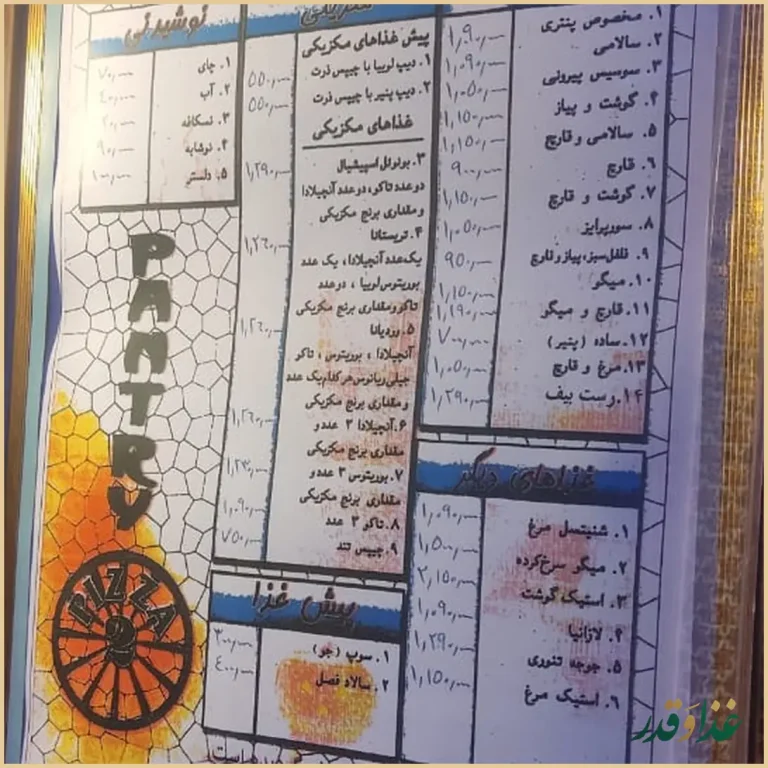 ۱. مخصوص پنتری ۱,۱۹۰,—
۲. سالامی ۱,۰۹۰,—
۳. سوسیس پپرونی ۱,۰۵۰,—
۴. گوشت و پیاز ۱,۱۵۰,—
۵. سالامی و قارچ ۱,۱۵۰,—
۶. قارچ ۹۰۰,—
۷. گوشت و قارچ ۱,۱۵۰,—
۸. سورپرایز ۱,۰۵۰,—
۹. فلفل سبز، پیاز و قارچ ۹۵۰,—
۱۰. میگو ۱,۱۵۰,—
۱۱. قارچ و میگو ۱,۱۹۰,—
۱۲. ساده (پنیر) ۷۰۰,—
۱۳. مرغ و قارچ ۱,۰۵۰,—
۱۴. رست بیف ۱,۲۹۰,—
غذاهای دیگر
۱. شنیتسل مرغ ۱,۰۹۰,—
۲. میگو سرخ کرده ۱,۵۰۰,—
۳. استیک گوشت ۲,۱۵۰,—
۴. لازانیا ۱,۰۹۰,—
۵. جوجه تنوری ۱,۲۹۰,—
۶. استیک مرغ ۱,۱۵۰,—
مکزیکی
پیش غذاهای مکزیکی
۱. دیپ لوبیا با چیپس ذرت ۵۵۰,—
۲. دیپ پنیر با چیپس ذرت ۵۵۰,—
غذاهای مکزیکی
۳. بونوئل اسپیشیال ۱,۲۹۰,—
دو عدد تاکو، دو عدد آنچیلادا
و مقداری برنج مکزیکی
۴. تریستانا ۱,۲۶۰,—
یک عدد آنچیلادا، یک عدد
بوریتوس لوبیا ، دو عدد
تاکو و مقداری برنج مکزیکی
۵. وردیانا ۱,۲۶۰,—
آنچیلادا ، بوریتوس ، تاکو
چیلی ریانوس هر کدام یک عدد
و مقداری برنج مکزیکی
۶. آنچیلادا ۳ عدد و ۱,۲۶۰,—
مقداری برنج مکزیکی
۷. بوریتوس ۳ عدد و ۱,۲۳۰,—
مقداری برنج مکزیکی
۸. تاکو ۳ عدد ۱,۰۹۰,—
۹. چیپس تند ۷۵۰,—
پیش غذا
۱. سوپ (جو) ۳۰۰,—
۲. سالاد فصل ۴۰۰,—
نوشیدنی
۱. چای ۷۰,—
۲. آب ۴۰,—
۳. نسکافه
۴. نوشابه ۹۰,—
۵. دلستر ۱۰۰,—
PANTRY
PIZZA
غذا و قدر